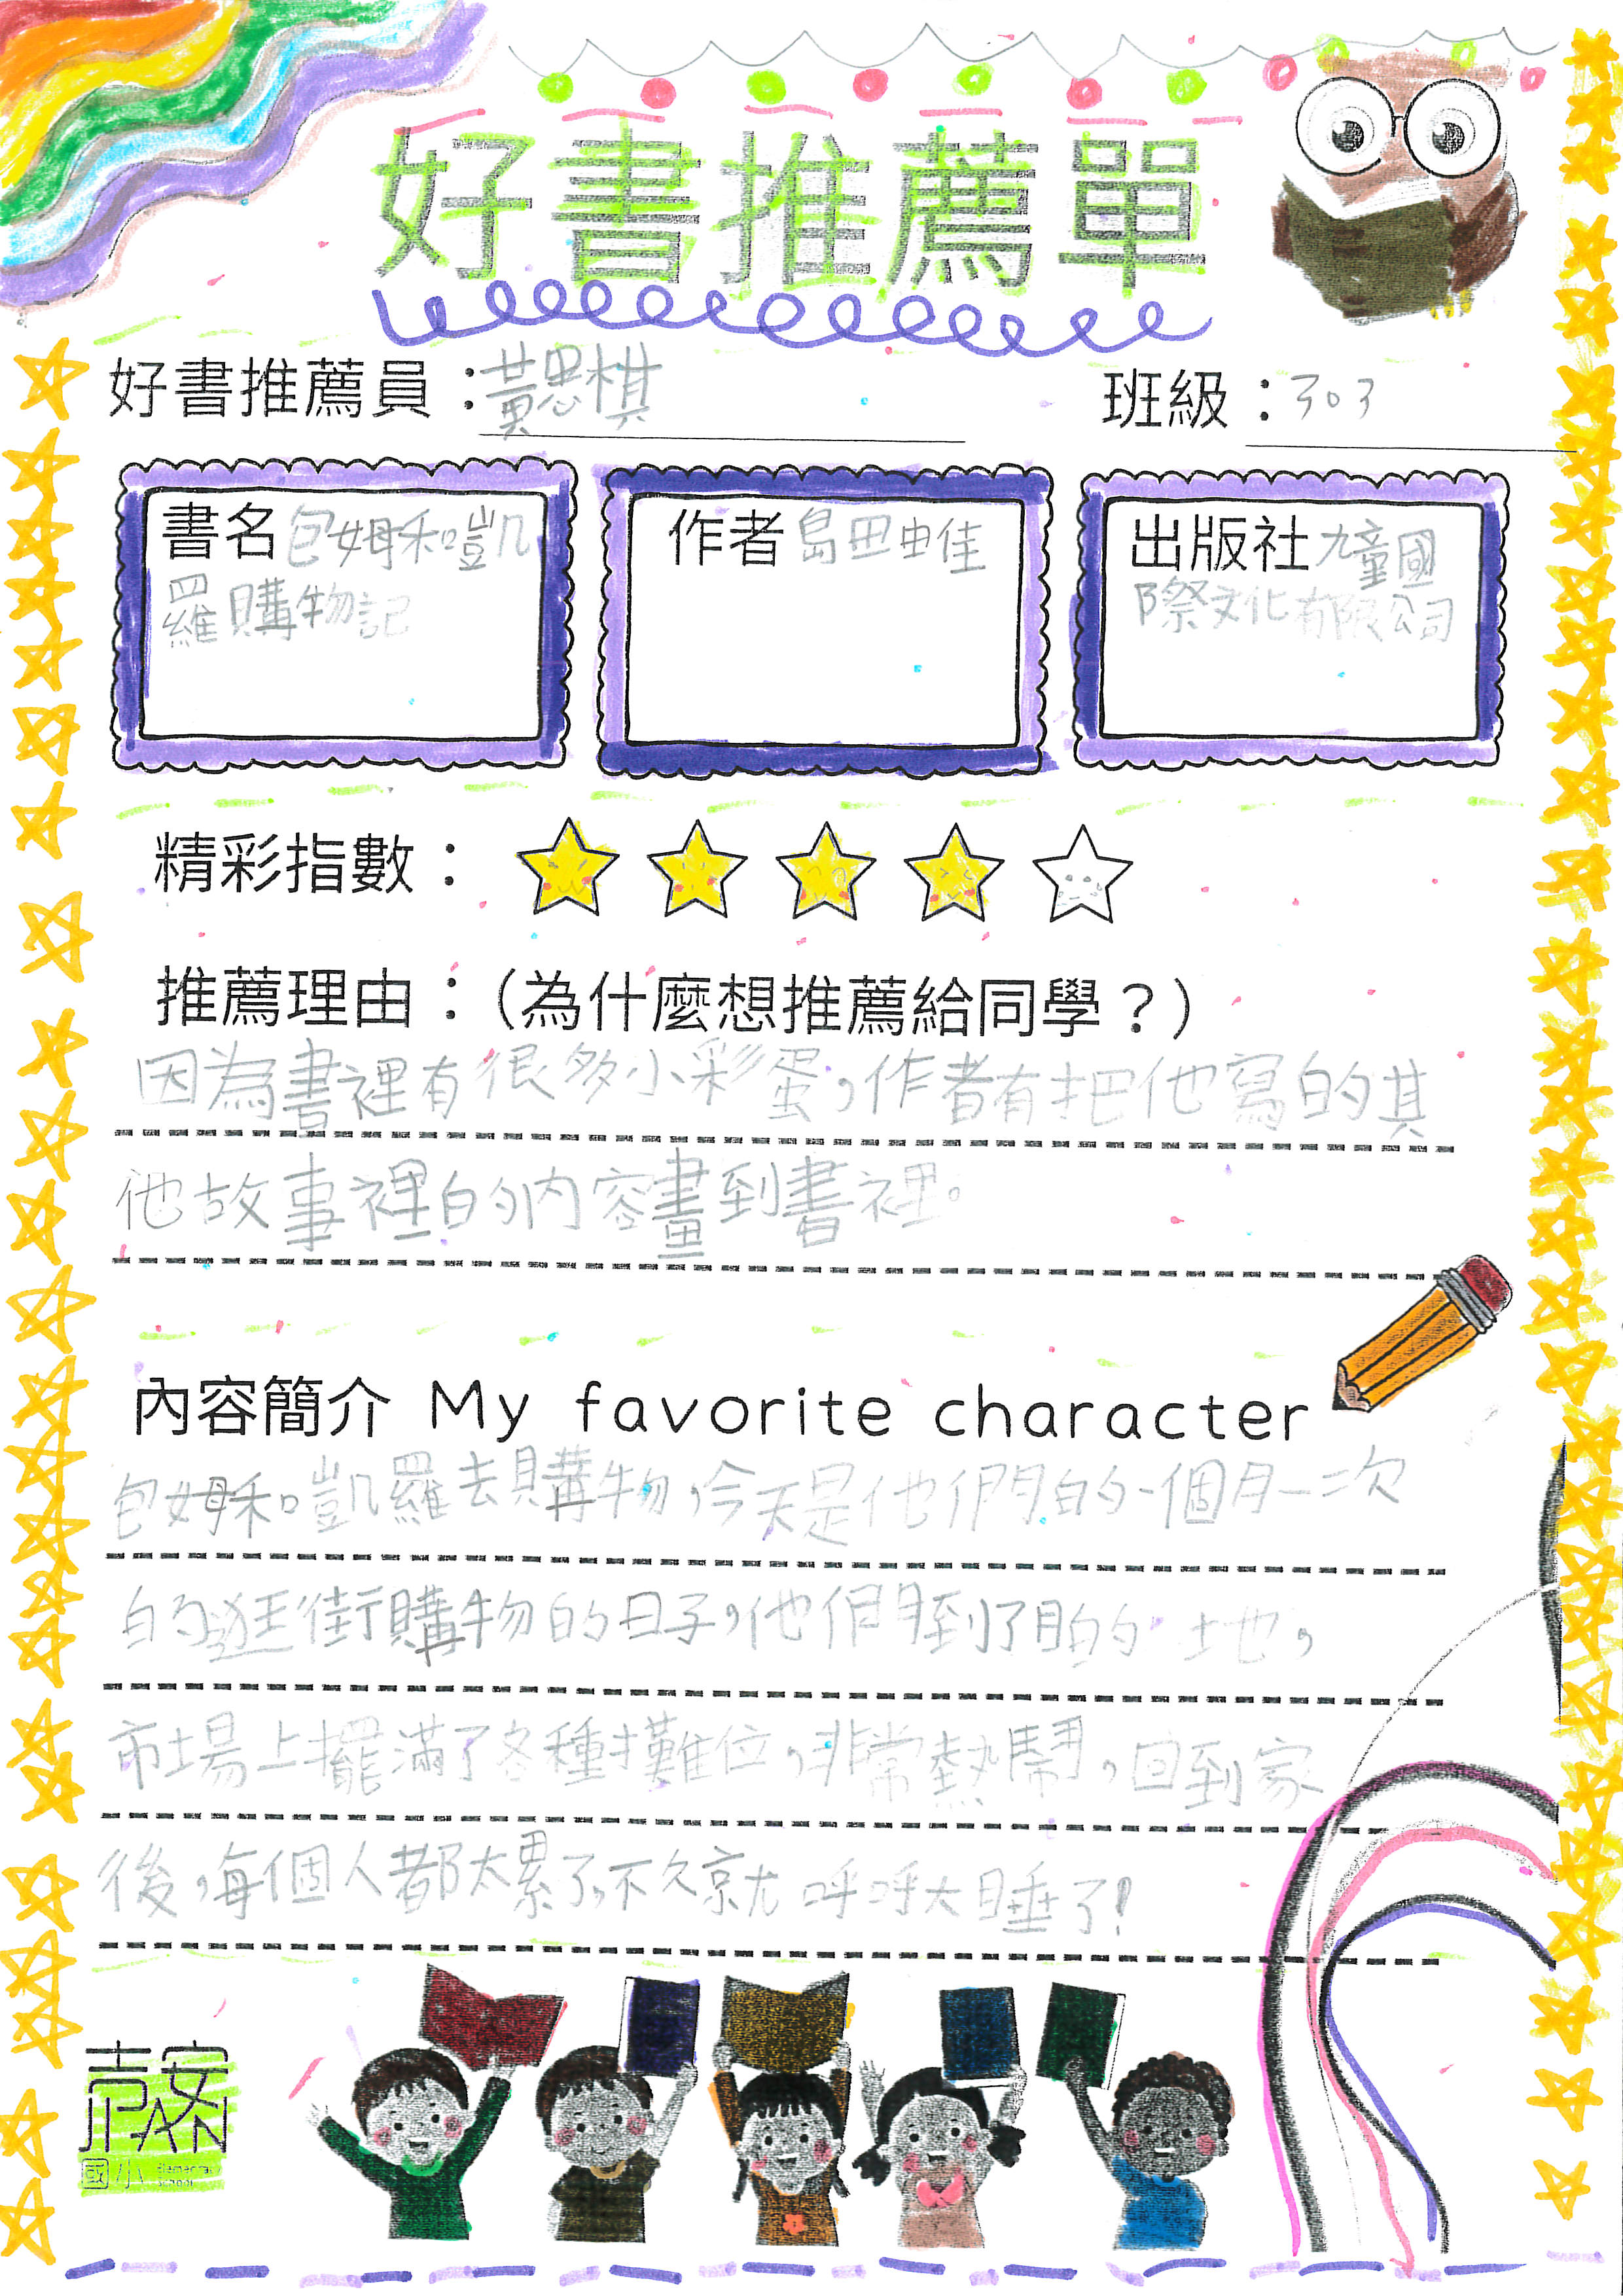 好書推薦單
好書推薦員：黃思棋
班級：303
書名 包姆和凱
羅購物記
作者 島田由佳
出版社 九童國
際文化有限公司
精彩指數：
推薦理由：（為什麼想推薦給同學？）
因為書裡有很多小彩蛋，作者有把他寫的其
他故事裡的內容畫到書裡。
內容簡介 My favorite character
包姆和凱羅去購物，今天是他們的一個月一次
的逛街購物的日子，他們到了目的地，
市場上擺滿了各種攤位，非常熱鬧，回到家
後，每個人都太累了，不久就呼呼大睡了！
國小 Elementary
School